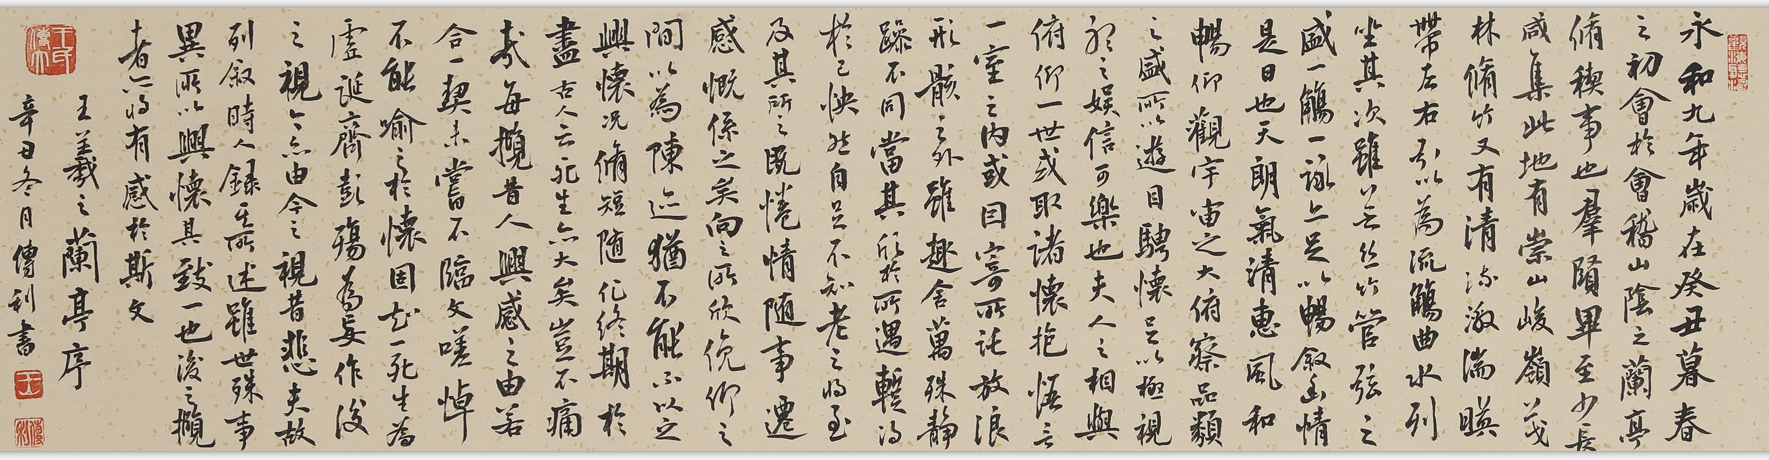 永和九年歲在癸丑暮春
之初會於會稽山陰之蘭亭
脩稧事也羣賢畢至少長
咸集此地有崇山峻嶺茂
林脩竹又有清流激湍暎
帶左右引以為流觴曲水列
坐其次雖無絲竹管弦之
盛一觴一詠亦足以暢敘幽情
是日也天朗氣清惠風和
暢仰觀宇宙之大俯察品類
之盛所以遊目騁懷足以極視
聽之娛信可樂也夫人之相與
俯仰一世或取諸懷抱悟言
一室之內或因寄所託放浪
形骸之外雖趣舍萬殊靜
躁不同當其欣於所遇暫得
於己怏然自足不知老之將至
及其所之既惓情隨事遷
感慨係之矣向之所欣俛仰之
間以為陳迹猶不能不以之
興懷況脩短隨化終期於
盡古人云死生亦大矣豈不痛
哉每攬昔人興感之由若
合一契未嘗不臨文嗟悼
不能喻之於懷固知一死生為
虛誕齊彭殤為妄作後
之視今亦由今之視昔悲夫故
列敘時人錄其所述雖世殊事
異所以興懷其致一也後之攬
者亦將有感於斯文
王羲之蘭亭序
辛丑冬月傳利書